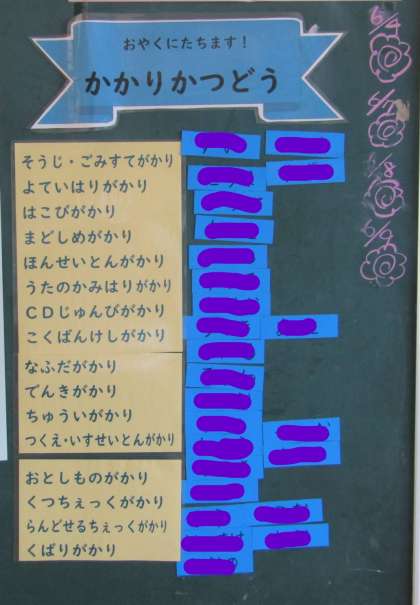 おやくにたちます！
かかりかつどう
そうじ・ごみすてがかり
よていはりがかり
はこびがかり
まどしめがかり
ほんせいとんがかり
うたのかみはりがかり
CDじゅんびがかり
こくばんけしがかり
なふだがかり
でんきがかり
ちゅういがかり
つくえ・いすせいとんがかり
おとしものがかり
くつちぇっくがかり
らんどせるちぇっくがかり
くばりがかり
6/4
6/7
6/8
6/9